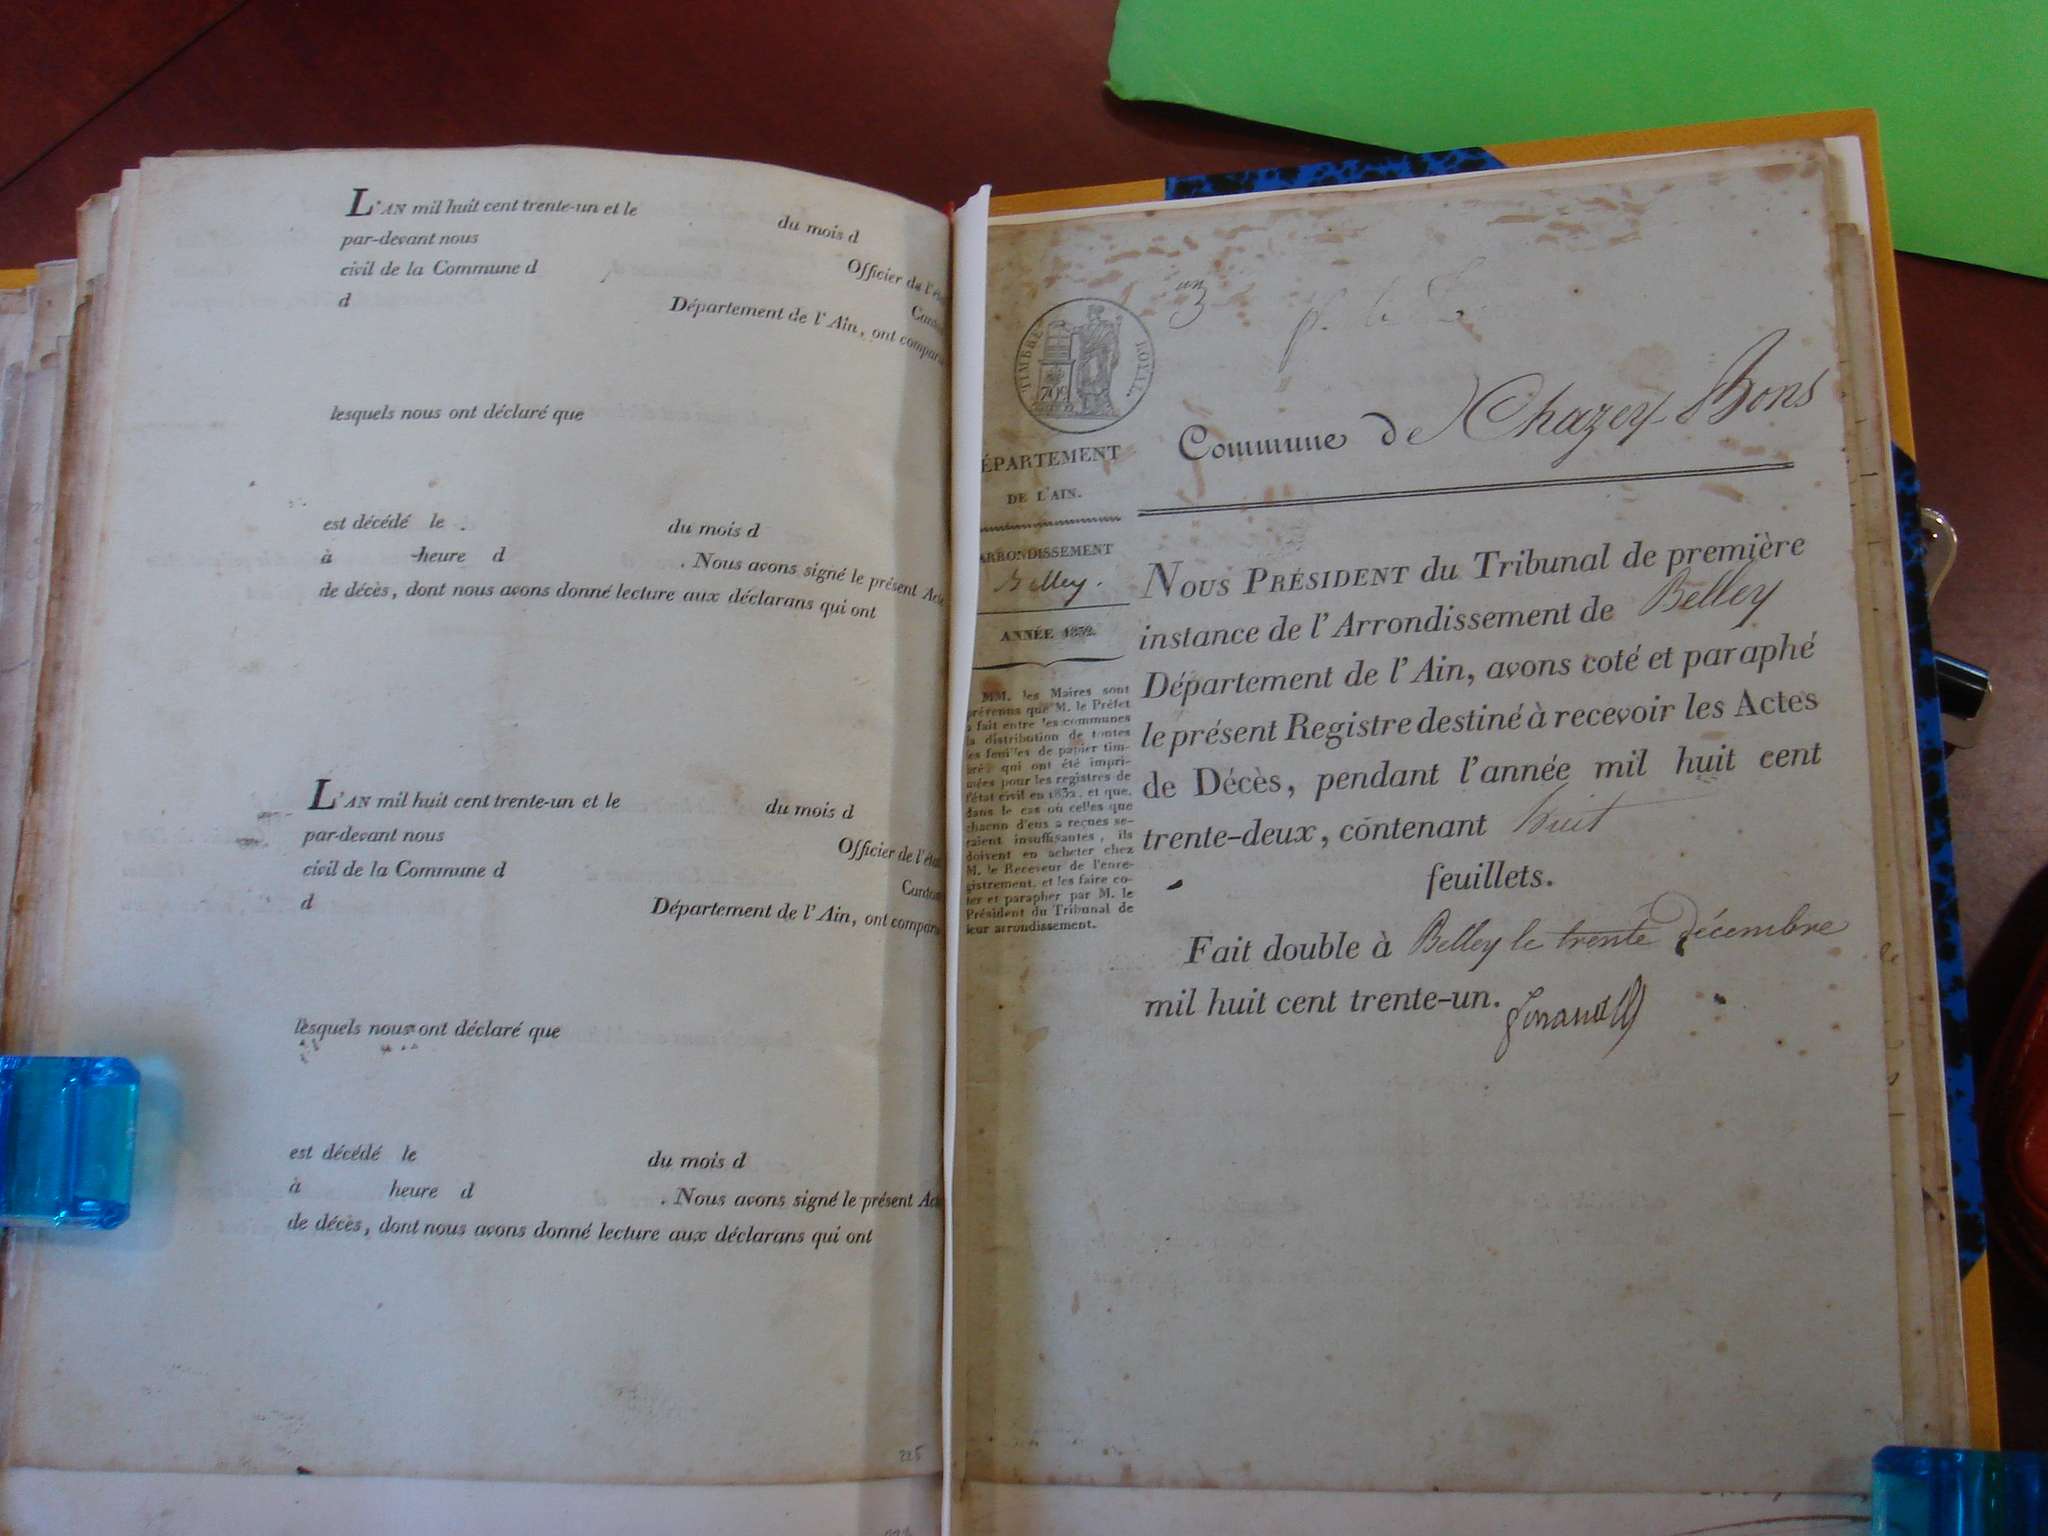 L'AN mil huit cent trente-un et le du mois d
par-devant nous Officier de l'ét
civil de la Commune d Canton
d Département de l'Ain, ont compar
lesquels nous ont déclaré que
est décédé le du mois d
à heure d . Nous avons signé le présent Acte
de décès, dont nous avons donné lecture aux déclarans qui ont
L'AN mil huit cent trente-un et le du mois d
par-devant nous Officier de l'état
civil de la Commune d Canton
d Département de l'Ain, ont compar
lesquels nous ont déclaré que
est décédé le du mois d
à heure d . Nous avons signé le présent Acte
de décès, dont nous avons donné lecture aux déclarans qui ont
225
TIMBRE ROYAL
Commune de Chazey-Bons
ÉPARTEMENT
DE L'AIN.
ARRONDISSEMENT
Belley.
ANNÉE 1832.
MM. les Maires sont
prévenus que M. le Préfet
a fait entre les communes
la distribution de toutes
les feuilles de papier tim-
bré qui ont été impri-
mées pour les registres de
l'état civil en 1832, et que,
dans le cas où celles que
chacun d'eux a reçues se-
raient insuffisantes, ils
doivent en acheter chez
M. le Receveur de l'enre-
gistrement, et les faire co-
ter et parapher par M. le
Président du Tribunal de
leur arrondissement.
NOUS PRÉSIDENT du Tribunal de première
instance de l'Arrondissement de Belley
Département de l'Ain, avons coté et paraphé
le présent Registre destiné à recevoir les Actes
de Décès, pendant l'année mil huit cent
trente-deux, contenant huit
feuillets.
Fait double à Belley le trente décembre
mil huit cent trente-un.